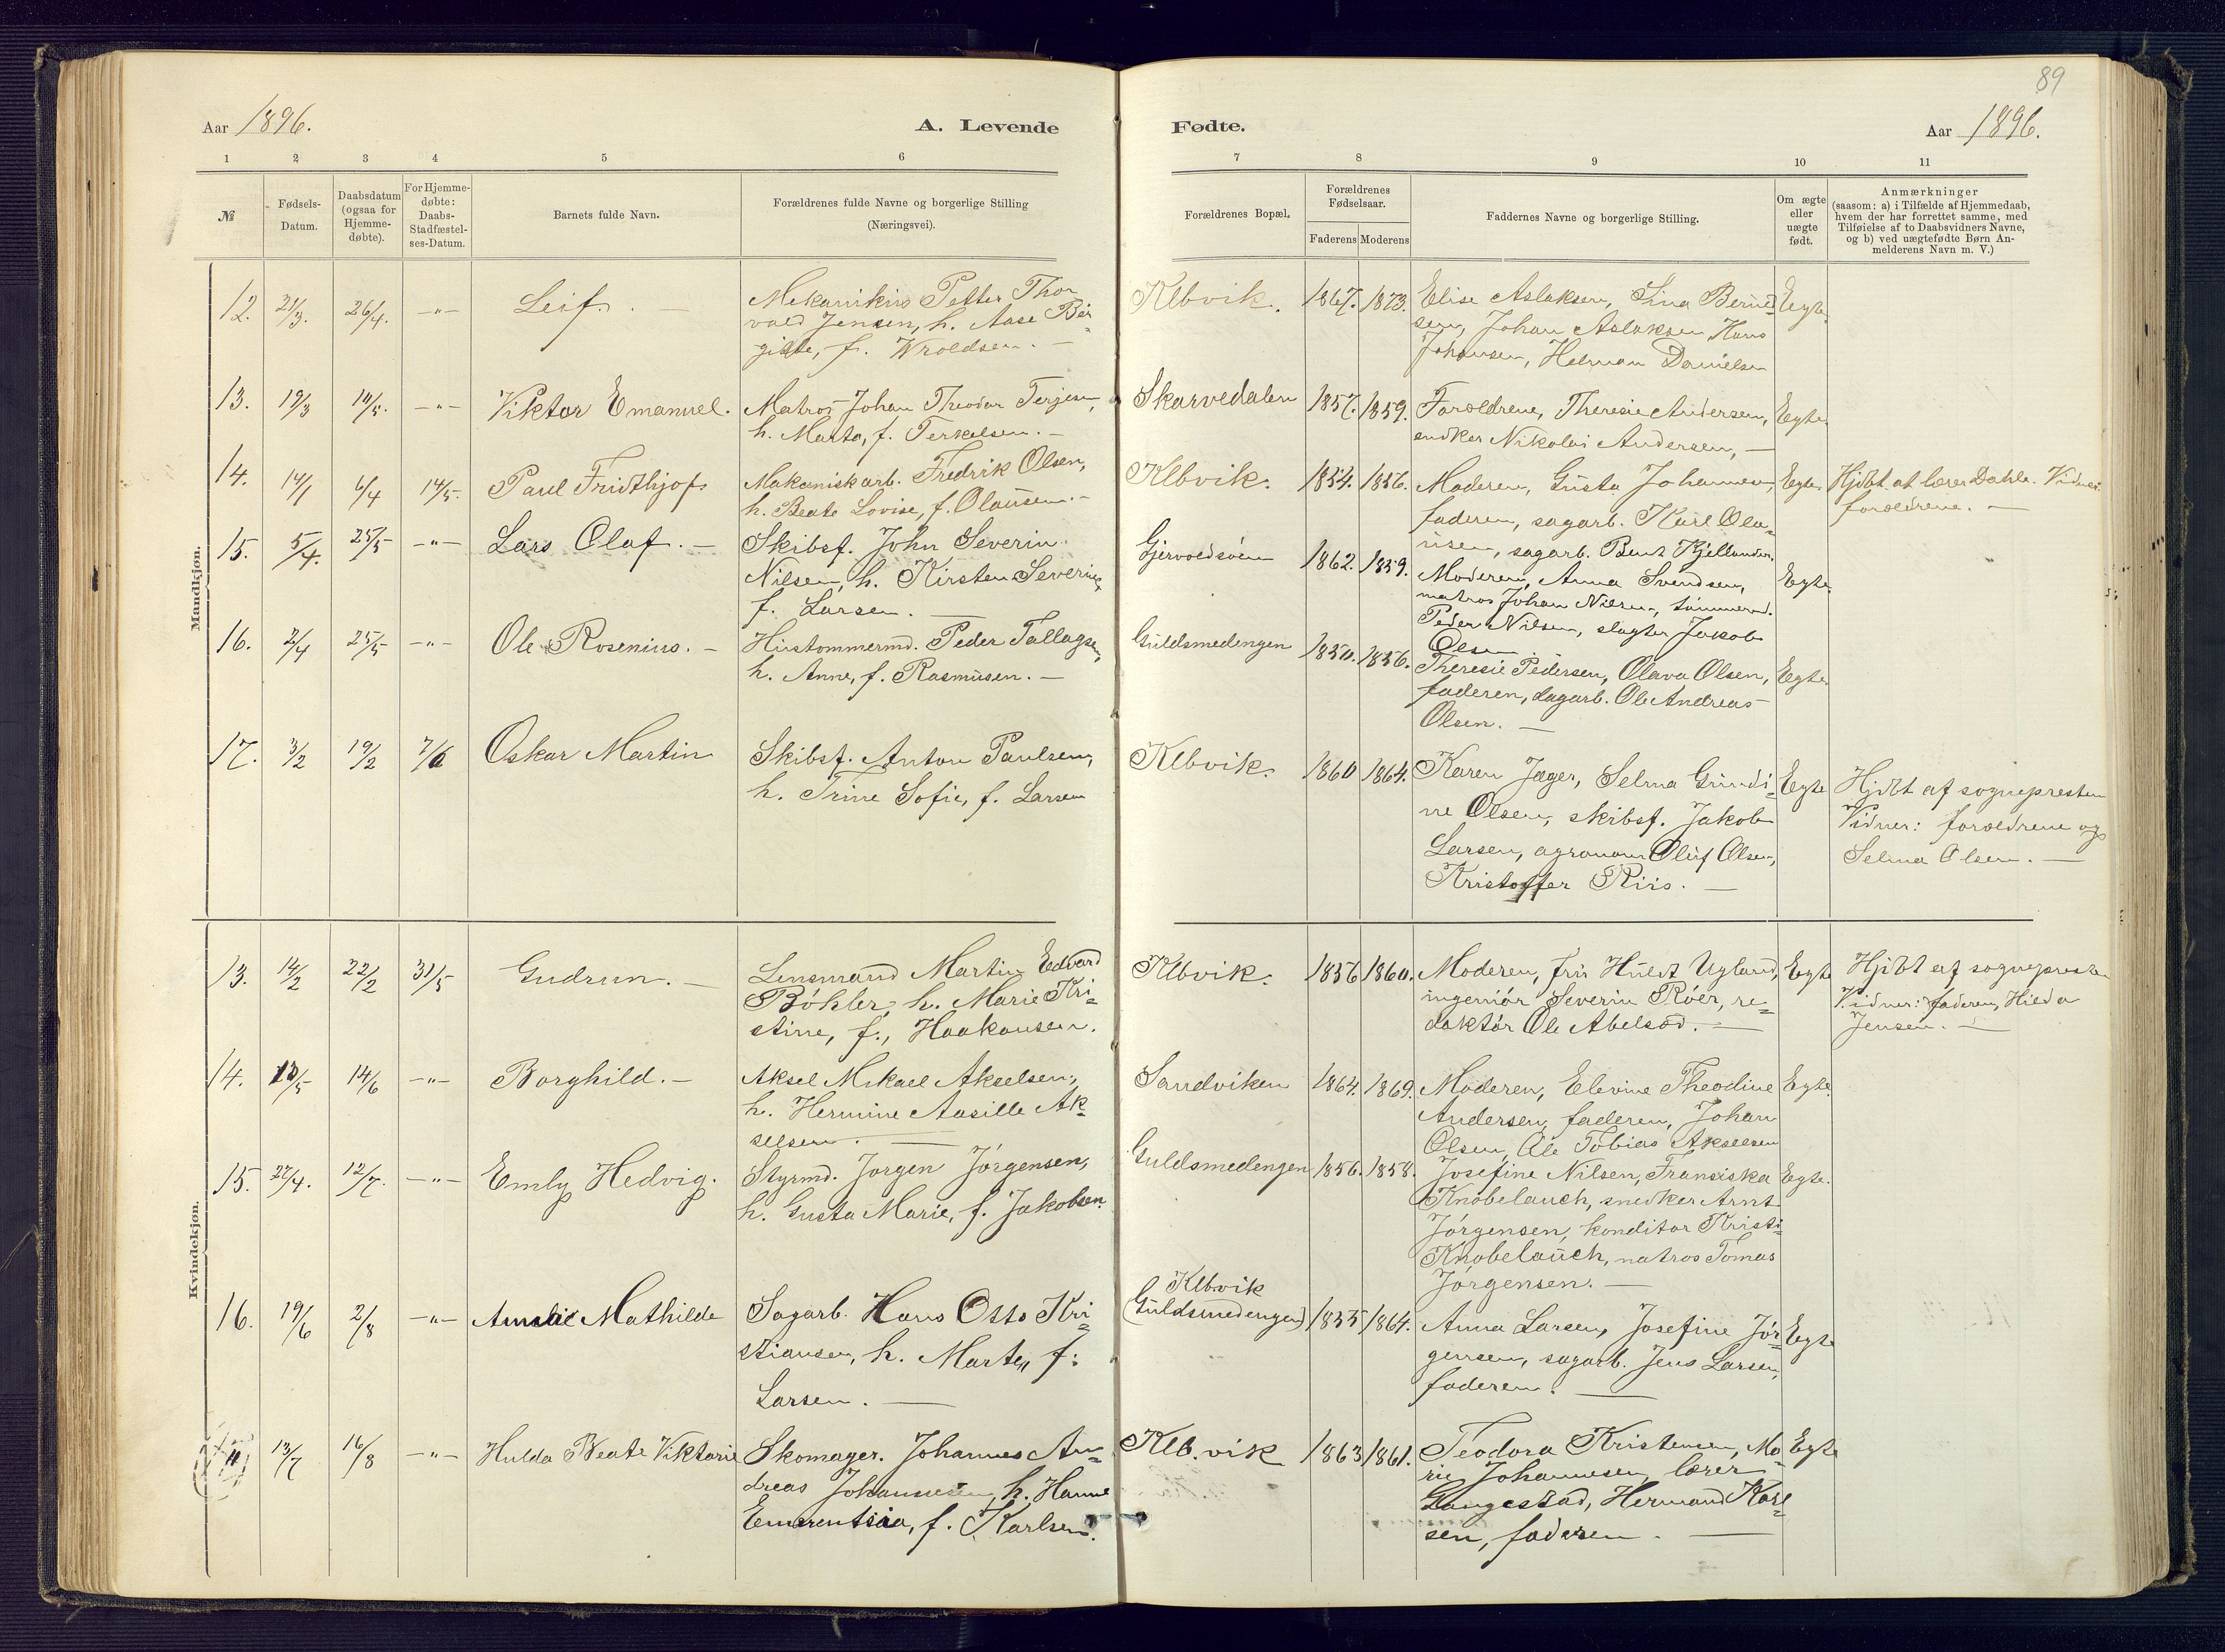 89
Aar 1896.
A. Levende
Fødte.
Aar 1896.
1 2 3 4 5 6
7 8 9 10 11
№
Fødsels-
Datum.
Daabsdatum
(ogsaa for
Hjemme-
døbte).
For Hjemme-
døbte:
Daabs-
Stadfæstel-
ses-Datum.
Barnets fulde Navn.
Forældrenes fulde Navne og borgerlige Stilling
(Næringsvei).
Forældrenes Bopæl.
Forældrenes
Fødselsaar.
Faderens Moderens
Faddernes Navne og borgerlige Stilling.
Om ægte
eller
uægte
født.
Anmærkninger
(saasom: a) i Tilfælde af Hjemmedaab,
hvem der har forrettet samme, med
Tilføielse af to Daabsvidners Navne,
og b) ved uægtefødte Børn An-
melderens Navn m. V.)
Mandkjøn.
12. 21/3. 26/4. -"- Leif. -
Mekanikus Petter Thor
vald Jensen, h. Aase Bir-
gitte, f. Wroldsen. -
Klbvik. 1867. 1873.
Elise Aslaksen, Sina Bernt
sen, Johan Aslaksen Hans
Johansen, Helman Danielsen
Egte.
13. 19/3 10/5. -"- Viktor Emanuel.
Matros Johan Theodor Terjesen,
h. Marta, f. Terkelsen. -
Skarvedalen 1857. 1859.
Forældrene, Theresie Andersen,
sndker Nikolai Andersen, -
Egte.
14. 14/1 6/4 14/5. Paul Fridthjof
Mekaniskarb. Fredrik Olsen,
h. Beate Lovise, f. Olausen. -
Klbvik. 1854. 1856.
Moderen, Gusta Johannesen,
faderen, sagarb. Karl Ola-
usen, sagarb. Bent Kjellandsen.
Egte.
Hjdbt. af lærer Dahle. Vidner
forældrene. -
15. 5/4. 25/5 -"- Lars Olaf. -
Skibsf. John Severin
Nilsen, h. Kirsten Severine,
f. Larsen. -
Gjervoldsøen 1862. 1859.
Moderen, Anna Svendsen,
matros Johan Nilsen, tømmermd.
Peder Nilsen, slagter Jakob
Olsen
Egte.
16. 2/4 25/5 -"- Ole Rosenius. -
Hustømmermd. Peder Tallagsen,
h. Anne, f. Rasmusen. -
Guldsmedengen 1850. 1856.
Theresie Pedersen, Olava Olsen,
faderen, dagarb. Ole Andreas
Olsen. -
Egte.
17. 3/2 19/2 7/6 Oskar Martin
Skibsf. Anton Paulsen,
h. Trine Sofie, f. Larsen
Klbvik. 1860 1864.
Karen Jæger, Selma Gundi-
ne Olsen, skibsf. Jakob
Larsen, agronom Oluf Olsen,
Kristoffer Riis. -
Egte
Hjdbt af sognepresten
Vidner: forældrene og
Selma Olsen. -
Kvindekjøn.
13. 14/2 22/2 31/5 Gudrun. -
Lensmand Martin Edvard
Bøhler, h. Marie Kri-
stine, f., Haakonsen.
Klbvik. 1856 1860.
Moderen, fru Huldt Ugland,
ingeniør Severin Röer, re-
daktør Ole Abelsød. -
Egte
Hjdbt af sognepresten
Vidner: faderen, Hilda
Jensen. -
14. 10/5 14/6 -"- Borghild. -
Aksel Mikael Akselsen,
h. Hermine Aasille Ak-
selsen. -
Sandviken 1864. 1869.
Moderen, Elevine Theodine
Andersen, faderen, Johan
Olsen, Ole Tobias Akselsen
Egte.
15. 27/4. 12/7. -"- Emly Hedvig.
Styrmd. Jørgen Jørgensen,
h. Gusta Marie, f. Jakobsen.
Guldsmedengen 1856. 1858.
Josefine Nilsen, Fransiska
Knobelauch, snedker Arnt
Jørgensen, konditor Kristi-
Knobelauch, matros Tomas
Jørgensen. -
Egte.
16. 19/6 2/8 -"- Amalie Mathilde
Sagarb. Hans Otto Kri-
stiansen, h. Marte, f.
Larsen. -
Klbvik
(Guldsmedengen) 1855 1864.
Anna Larsen, Josefine Jør-
gensen, sagarb. Jens Larsen,
faderen. -
Egte
13/7 16/8 -"- Hulda Beate Viktorie
Skomager. Johannes An-
dreas Johannesen, h. Hanne
Emerentsia, f. Karlsen.
Klb.vik 1863 1861.
Teodora Kristensen, Ma-
rie Johannesen, lærer
Langestad, Hermand Karl-
sen, faderen. -
Egte